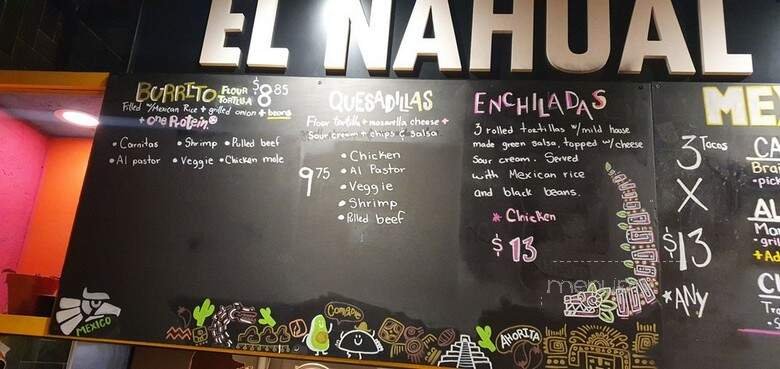 EL NAHUAL
BURRITO FLOUR TORTILLA $8.85
Filled w/Mexican Rice + grilled onion + beans
+ one Protein
• Carnitas • Shrimp • Pulled beef
• Al pastor • Veggie • Chicken mole
QUESADILLAS
Flour tortilla + mozzarella cheese +
Sour cream + chips & salsa
9.75
• Chicken
• Al Pastor
• Veggie
• Shrimp
• Pulled beef
ENCHILADAS
3 rolled tortillas w/mild house
made green salsa, topped w/cheese
Sour cream. Served
with Mexican rice
and black beans.
* Chicken
$13
3 Tacos
X
$13
*ANY
ME
CA
Brai
-pic
AL
Mar
-gri
+Ad
MEXICO
AHORITA